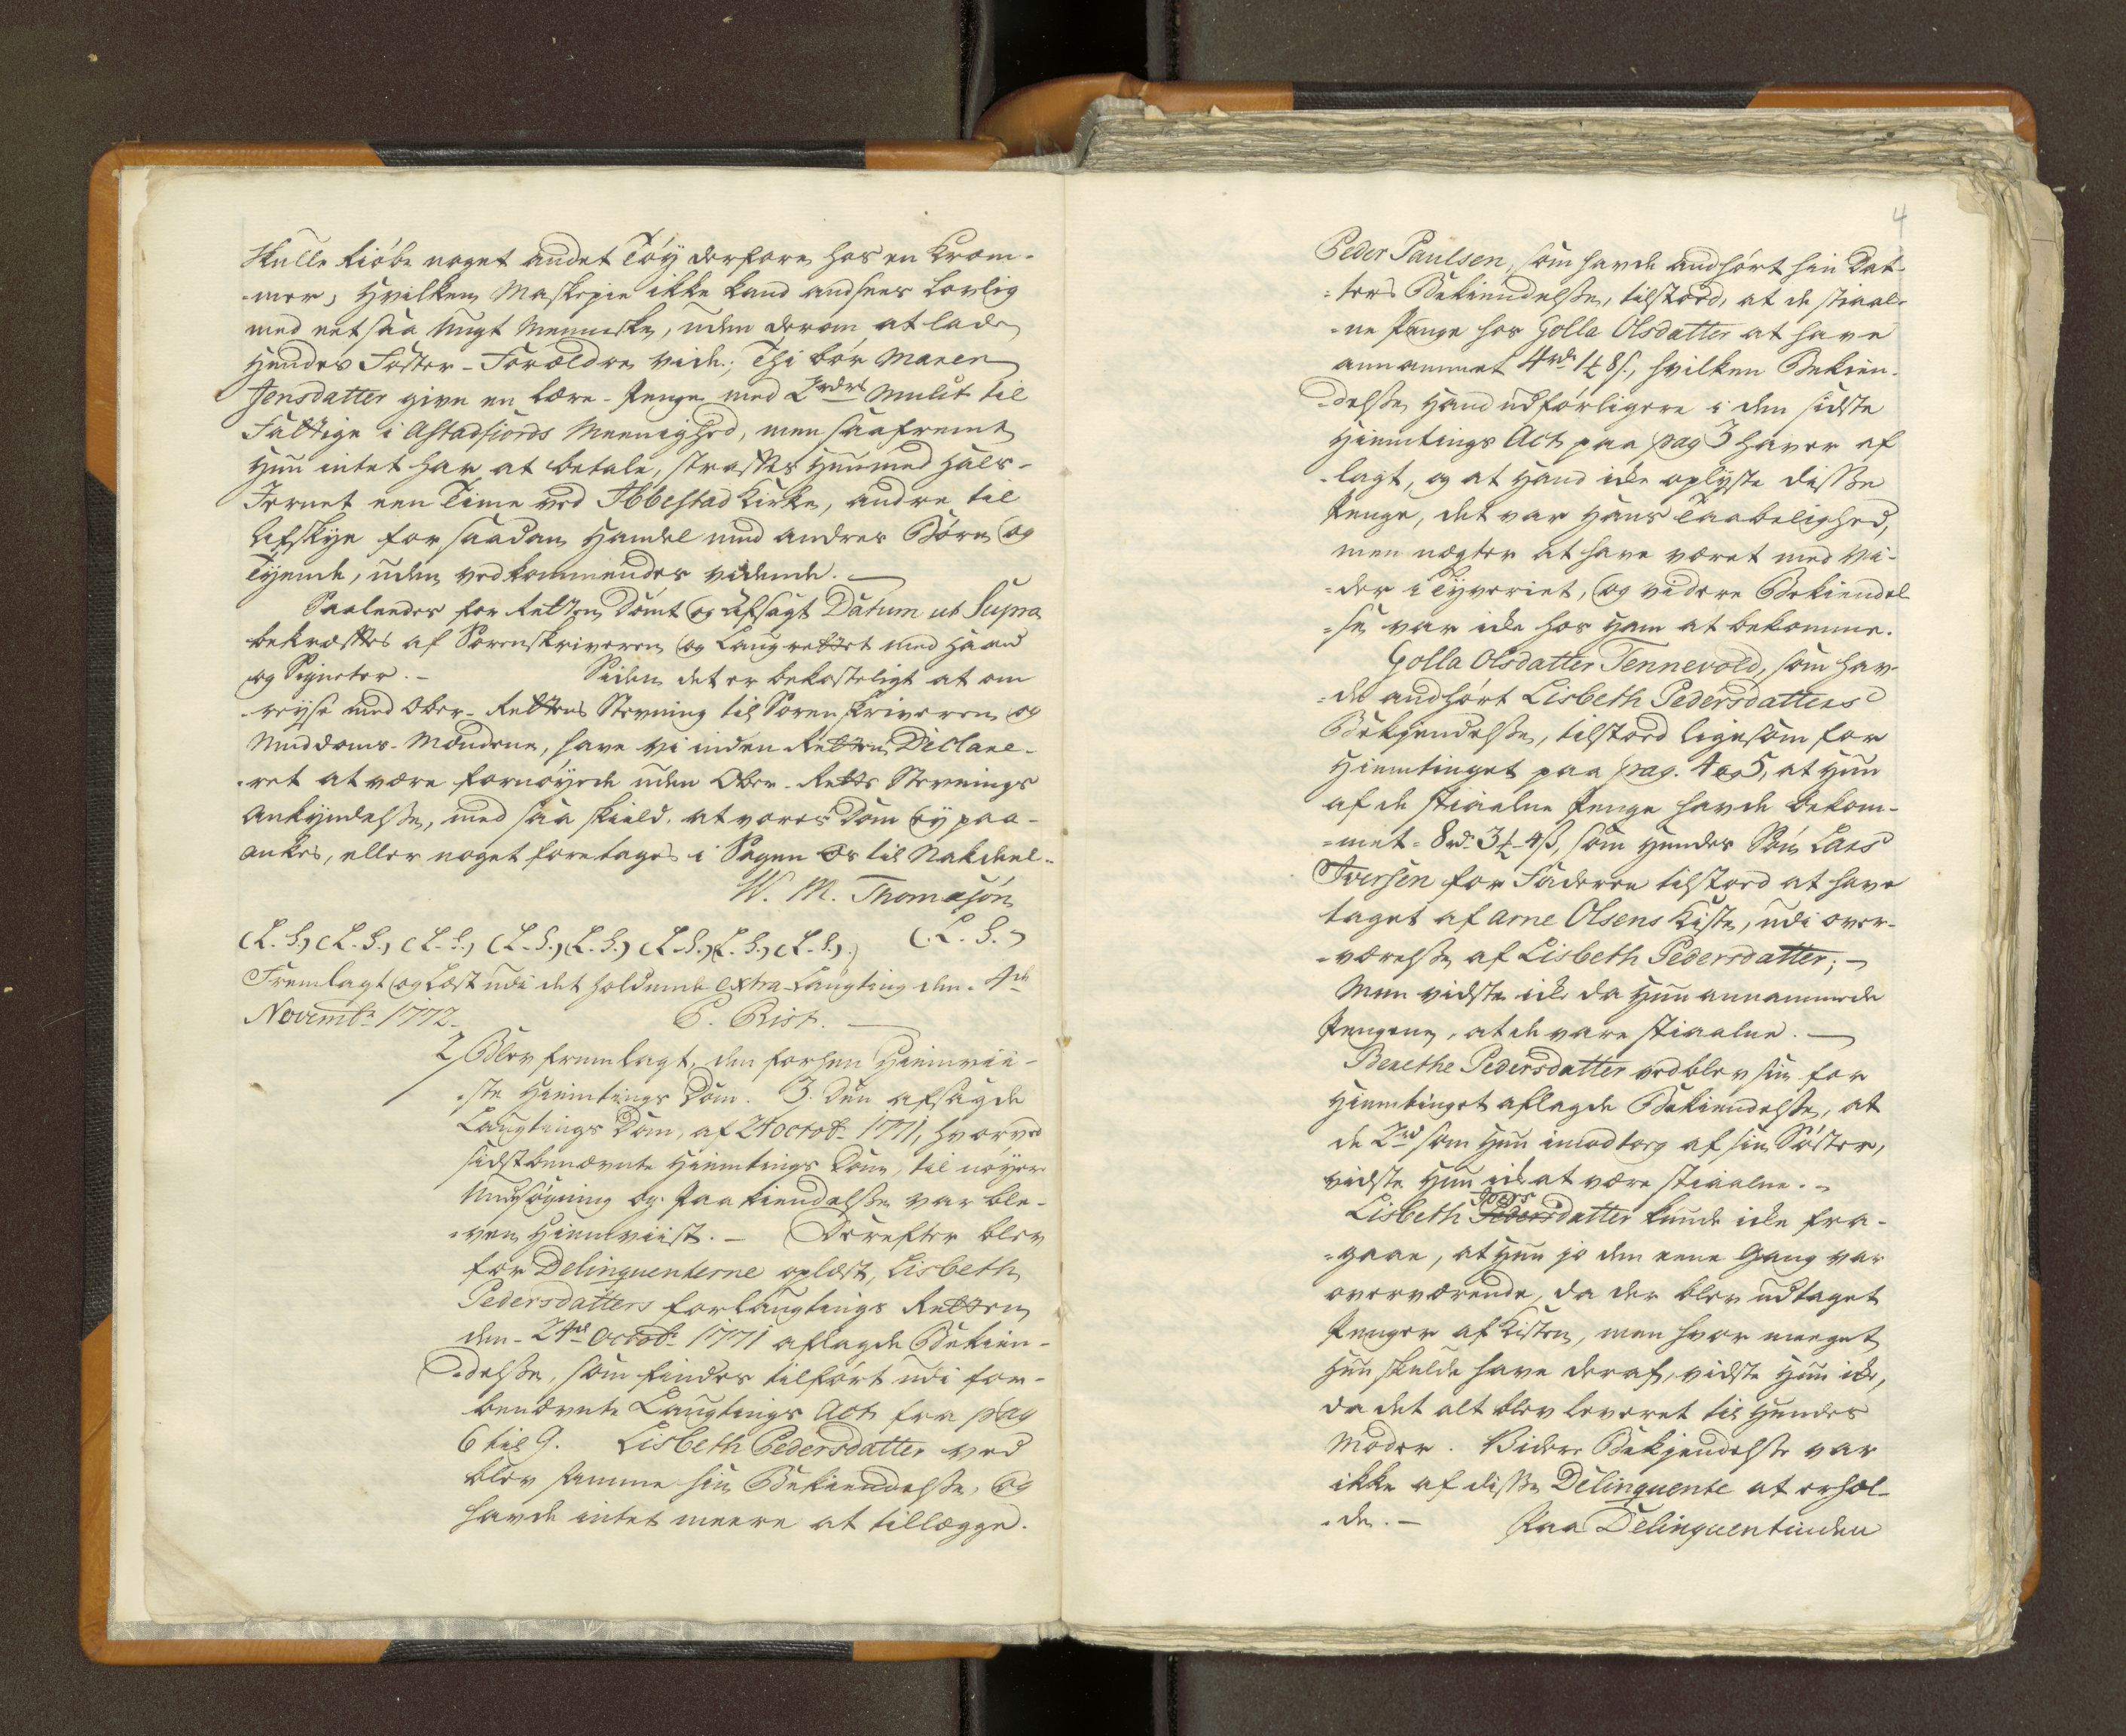 Skulle kiöbe noget andet Töy derfore hos en Krom-
-mer; Hvilken Maskepie ikke kand ansees lovlig
med eet saa Ungt Menniske, uden derom at lade
hendes Foster-Forældre vide; Thi bör Maren
Jensdatter give en lære-Penge med 2 rdrs Mulct til
Fattige i Astadfiords Menighed, men saafremt
hun intet har at betale, straffes hun med Hals-
Jernet een Time ved Ibbestad Kirke, andre til
Afskye for saadan Handel med andres Börn og
Tyende, uden vedkommendes vidende. —
Saaledes for Retten Dömt og Afsagt Datum ut Supra
bekræftes af Sorenskriveren og Laugrettet med Haand
og Signeter. - Siden det er bekosteligt at om
-reyse med Ober-Rettens Stevning til Sorenskriveren og
Meddoms-Mændene, have vi inden Retten Declare-
-ret at være fornöyede uden Ober-Retts Stevnings
Ankyndelsse, med saa skield, at vores Dom ey paa-
ankes, eller noget foretages i Sagen Os til Nakdeel.
W. M. Thomasön
(L. S.) (L. S.) (L. S.) (L. S.) (L. S.) (L. S.) (L. S.) (L. S.) (L. S.)
Fremlagt og Læst udi det holdende extra Laugting den 4de
Novembr 1772. P. Rist. —
2/ Blev fremlagt, den forhen Hiemvii-
-ste Hiemtings Dom. 3. Den afsagde
Laugtings Dom, af 24 octob. 1771, hvorved
sidstbenævnte Hiemtings Dom, til nöyere
Undersögning og Paakiendelsse var ble-
-ven Hiemviist. - Derefter blev
for Delinquenterne oplæst, Lisbeth
Pedersdatters for Laugtings Retten
den 24de Octobr 1771 aflagde Bekien-
-delsse, som findes tilfört udi for-
benævnte Laugtings Act fra pag
6 til 9. Lisbeth Pedersdatter ved
blev samme sin Bekiendelsse, og
havde intet meere at tillægge.
4
Peder Paulsen, som havde anhört sin Dat-
-ters Bekiendelsse, tilstod, at de stiaal-
-ne Penge hos Golla Olsdatter at have
annammet 4 rd. 1 8 s., hvilken Bekien-
-delsse Hand udförligere i den sidste
Hiemtings Act paa pag 3 haver af
-lagt, og at Hand icke oplyste disse
Penge, det var Hans Taabelighed,
men nægter at have været med vi-
-der i Tyveriet, og videre Bekiendel
-se var icke hos Ham at bekomme.
Golla Olsdatter Tennevold, som hav-
-de andhört Lisbeth Pedersdatters
Bekjendelsse, tilstoed ligesom for
Hiemtinget paa pag. 4 og 5, at Hun
af de stiaalne Penge havde bekom-
-met 8 rd. 3 4 s, som Hendes Sön Lars
Iversen for Faderen tilstoed at have
taget af Arne Olsens Kiste, udi over-
-værelsse af Lisbeth Pedersdatter; -
Men vidste icke da Hun annammede
Pengene, at de vare stiaalne. —
Berethe Pedersdatter vedblev sin for
Hiemtinget aflagde Bekiendelsse, at
de 2 rd som Hun imodtog af sin Söster,
vidste Hun icke at være stiaalne. -
Lisbeth Ivers Pedersdatter kunde icke fra-
-gaae, at Hun jo den eene Gang var
overværende, da der blev udtaget
Penger af Kisten, men hvor meeget
Hun skulde have deraf, vidste Hun icke,
da det alt blev leveret til Hendes
Moder. Videre Bekjendelsse var
ikke af disse Delinquente at erhol-
-de. - Paa Delinquentinden